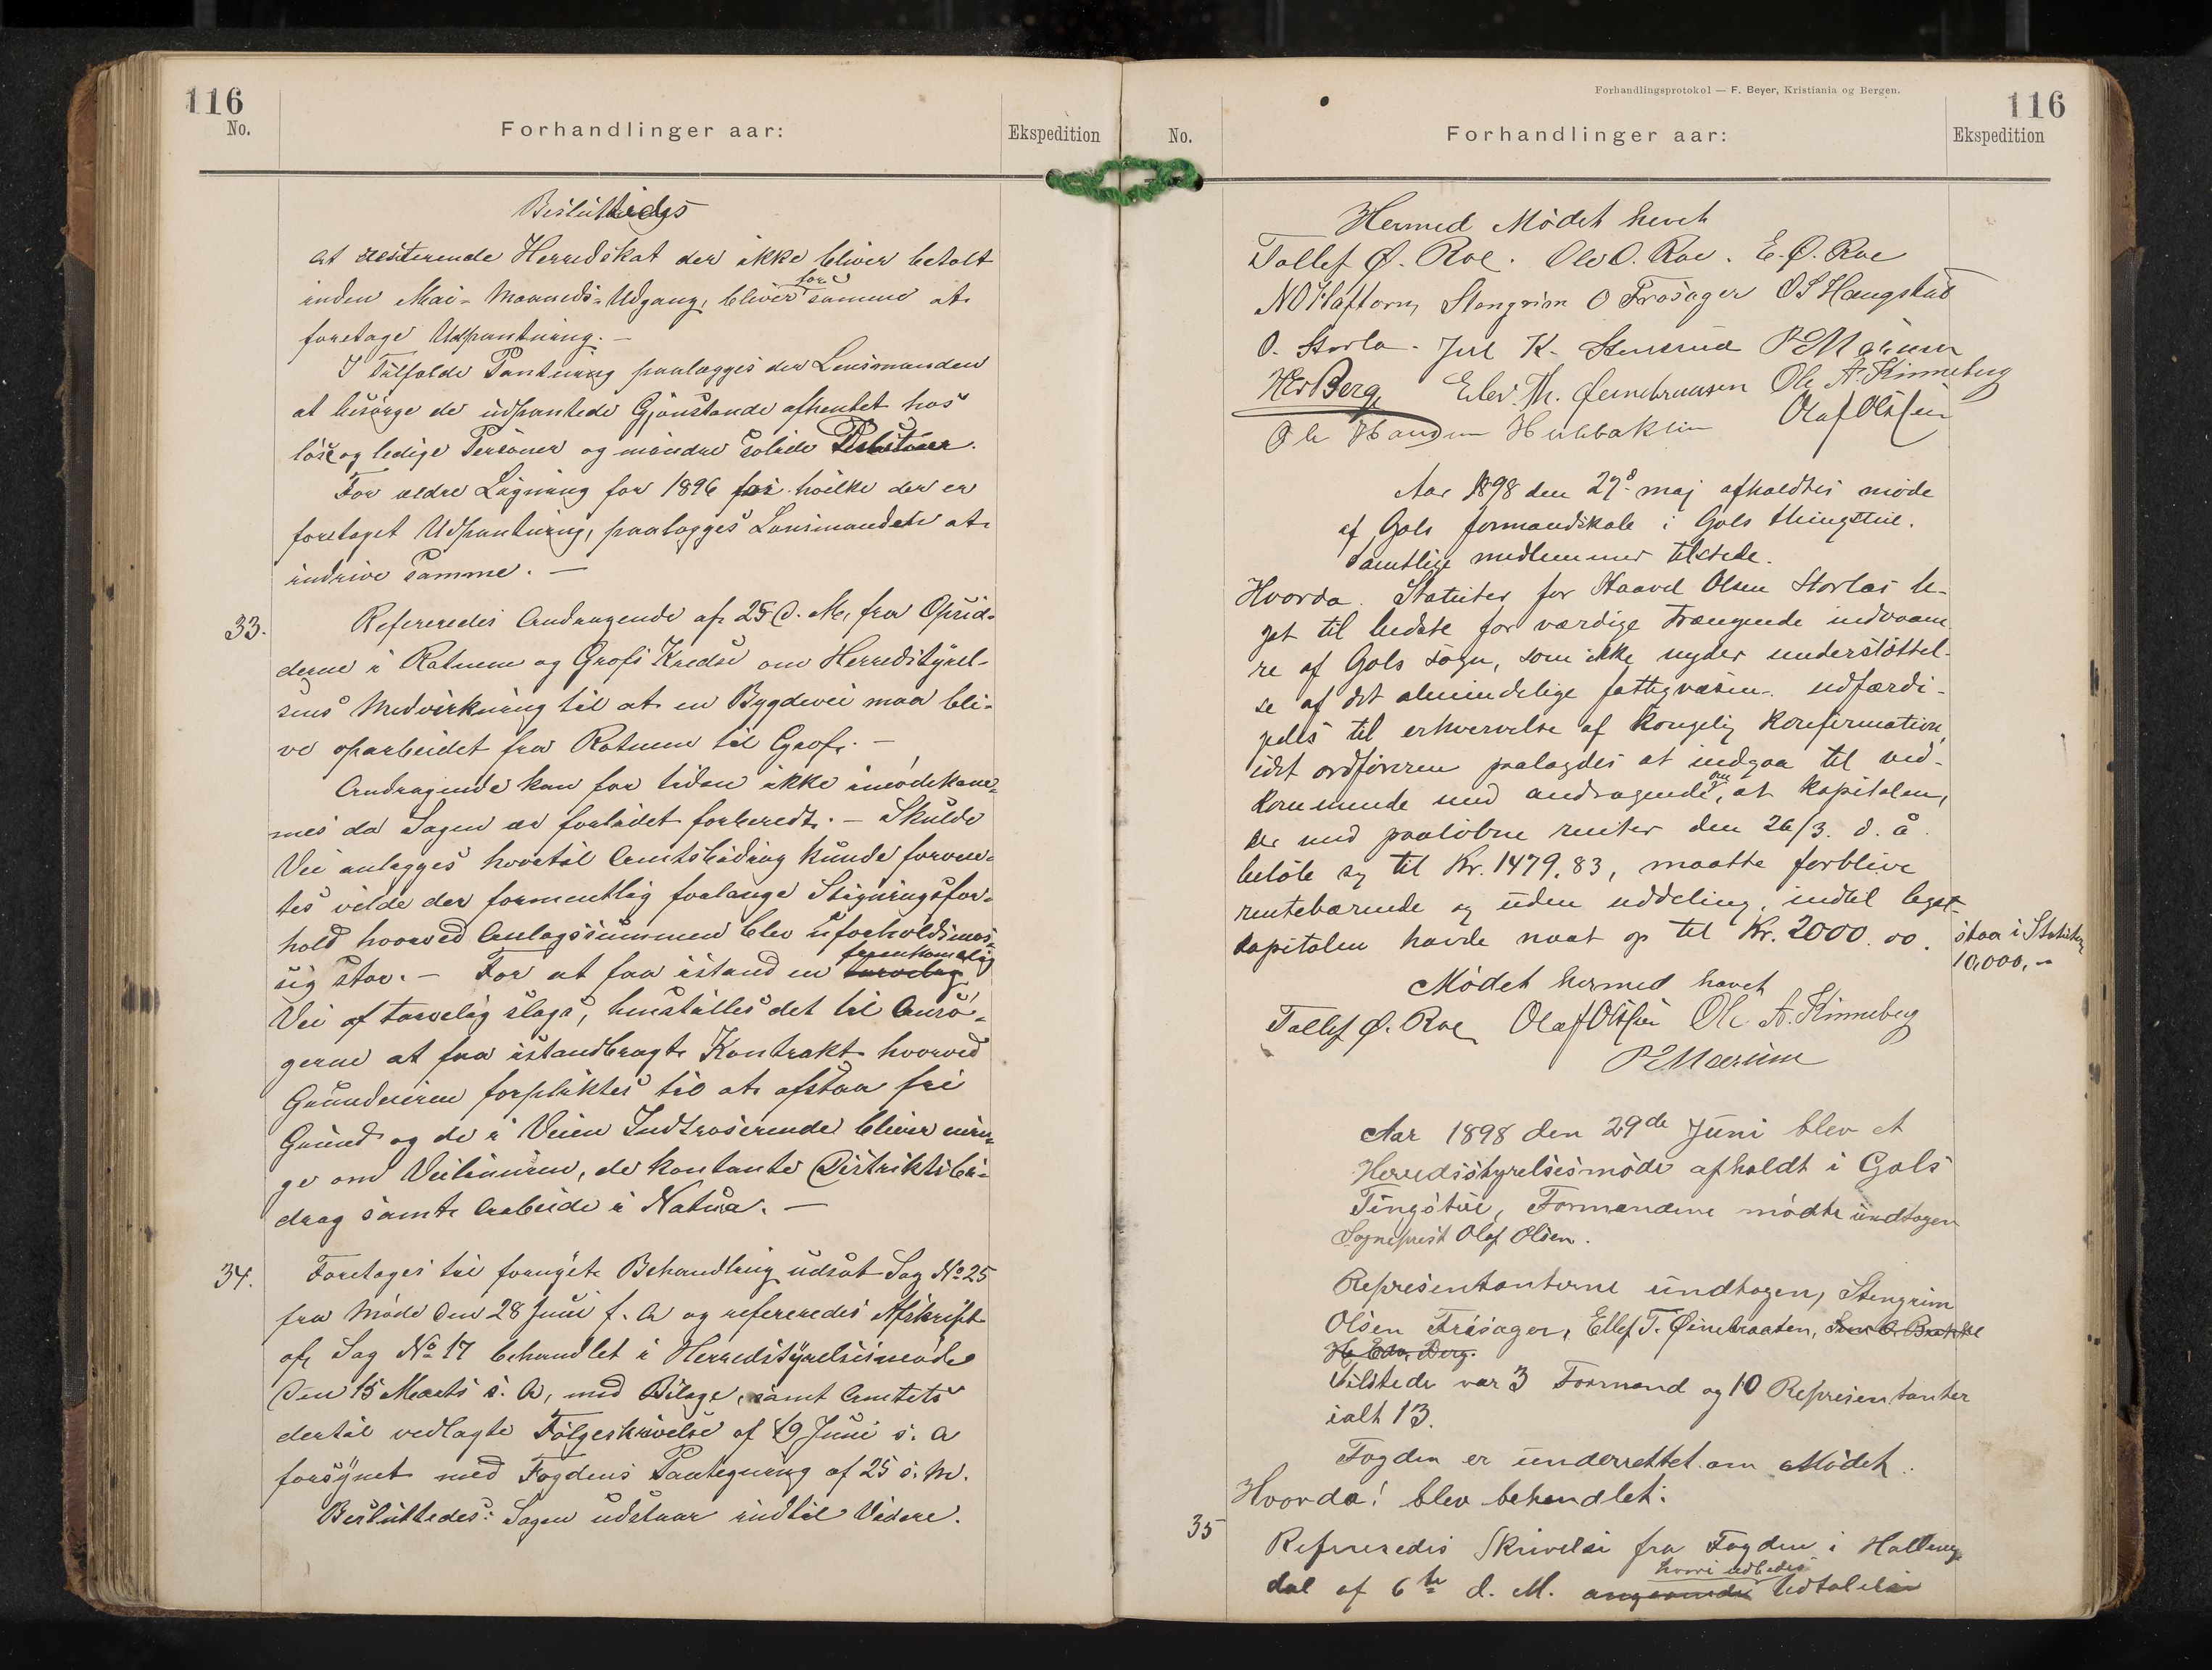 116
No.
Forhandlinger aar:
Ekspedition
Besluttedes
at resterende Herredskat der ikke bliver betalt
inden Mai-Maaneds-Udgang, bliver for samme at
foretage Udpantning. —
I Tilfælde Pantning paalægges der Lensmanden
at besørge de udpantede Gjenstande afhentet hos
løse og ledige Personer og mindre solide Debitorer.
For ældre Ligning for 1896 for hvilke der er
foretaget Udpantning, paalægges Lensmanden at
indrive samme. —
33.
Refereredes Andragende af 25 d. M. fra Opsid-
derne i Rotnem og Grøfs Kredse om Herredstyrel-
sens Medvirkning til at en Bygdevei maa bli-
ve oparbeidet fra Rotnem til Grøf. —
Andragende kan for tiden ikke imødekom-
mes da Sagen er forlidet forberedt. — Skulde
Vei anlægges hvortil Amtsbidrag kunde forven-
tes vilde der formentlig forlange Stigningsfor-
hold hvorved Anlagssummen blev uforholdsmæs-
sig stor. — For at faa istand en farvelig fremkomelig
Vei af tarvelig slags, henstilles det til Ansø-
gerne at faa istandbragt Kontrakt hvorved
Grundeieren forpliktes til at afstaa fri
Grund og de i Veien Indtroserende bliver enin-
ge om Veilinien, de kontante Distriktsbi-
drag samt Arbeide i Natura. —
34.
Foretages til fornyet Behandling udsat Sag No 25
fra Møde den 28 Juni f. A og refereredes Afskrift
af Sag No 17 behandlet i Herredstyrelsesmøde
den 15 Marts s. A, med Bilage, samt Amtets
dertil vedlagte Følgeskrivelse af 19 Juni s. A
forsynet med Fogdens Paategning af 25 s. M.
Besluttedes: Sagen udstaar indtil Videre.
Forhandlingsprotokol — F. Beyer, Kristiania og Bergen.
116
No.
Forhandlinger aar:
Ekspedition
Hermed Mødet hevet
Tollef Ø. Roe. Ole O. Roe. E. Ø. Roe
Stengrim O Frøsager O S Haugstad
O. Storla. Jul K. Stensrud P E Mærum
H Edv Berg Ole A. Kinneberg
Olaf Olssen
Aar 1898 den 27de maj afholdtes møde
af Gols formandskab i Gols thingstue.
Samtlige medlemmer tilstede.
Hvorda. Statuter for Haavel Olsen Storlas le-
gat til bedste for værdige trængende indvaane
re af Gols sogn, som ikke nyder understøttel-
se af det almindelige fattigvæsen udfærdi-
gedes til erhvervelse af kongelig konfirmation,
idet ordføreren paalagdes at indgaa til ved-
kommende med andragende om, at kapitalen,
der med paaløbne renter den 26/3. d. å.
beløb sig til Kr. 1479,83, maatte forblive
rentebærende og uden uddeling, indtil legat-
kapitalen havde naat op til Kr. 2000.00.
staa i Statuten
10,000,-
Mødet hermed hævet
Tollef Ø. Roe Olaf Olssen Ole A. Kinneberg
P E Mærum
Aar 1898 den 29de Juni blev et
Herredsstyrelsesmøde afholdt i Gols
Tingstue, Formændene mødte undtagen
Sogneprest Olaf Olsen.
Representanterne undtagen, Stengrim
Olsen Frøsager, Ellef T. Øinebraaten,
H. Edv. Berg.
Tilstede var 3 Formænd og 10 Representanter
ialt 13.
Fogden er underrettet om Mødet.
Hvorda! blev behandlet:
35
Refereredes Skrivelse fra Fogden i Halling-
dal af 6te d. M. angaaende hvori udbedes Udtalelse